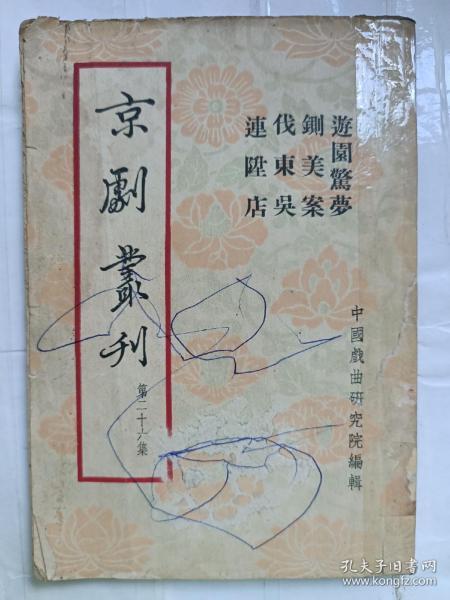 遊園驚夢
鍘美案
伐東吳
連陞店
京劇叢刊
第二十六集
中國戲曲研究院編輯
孔夫子旧书网
www.kongfz.com